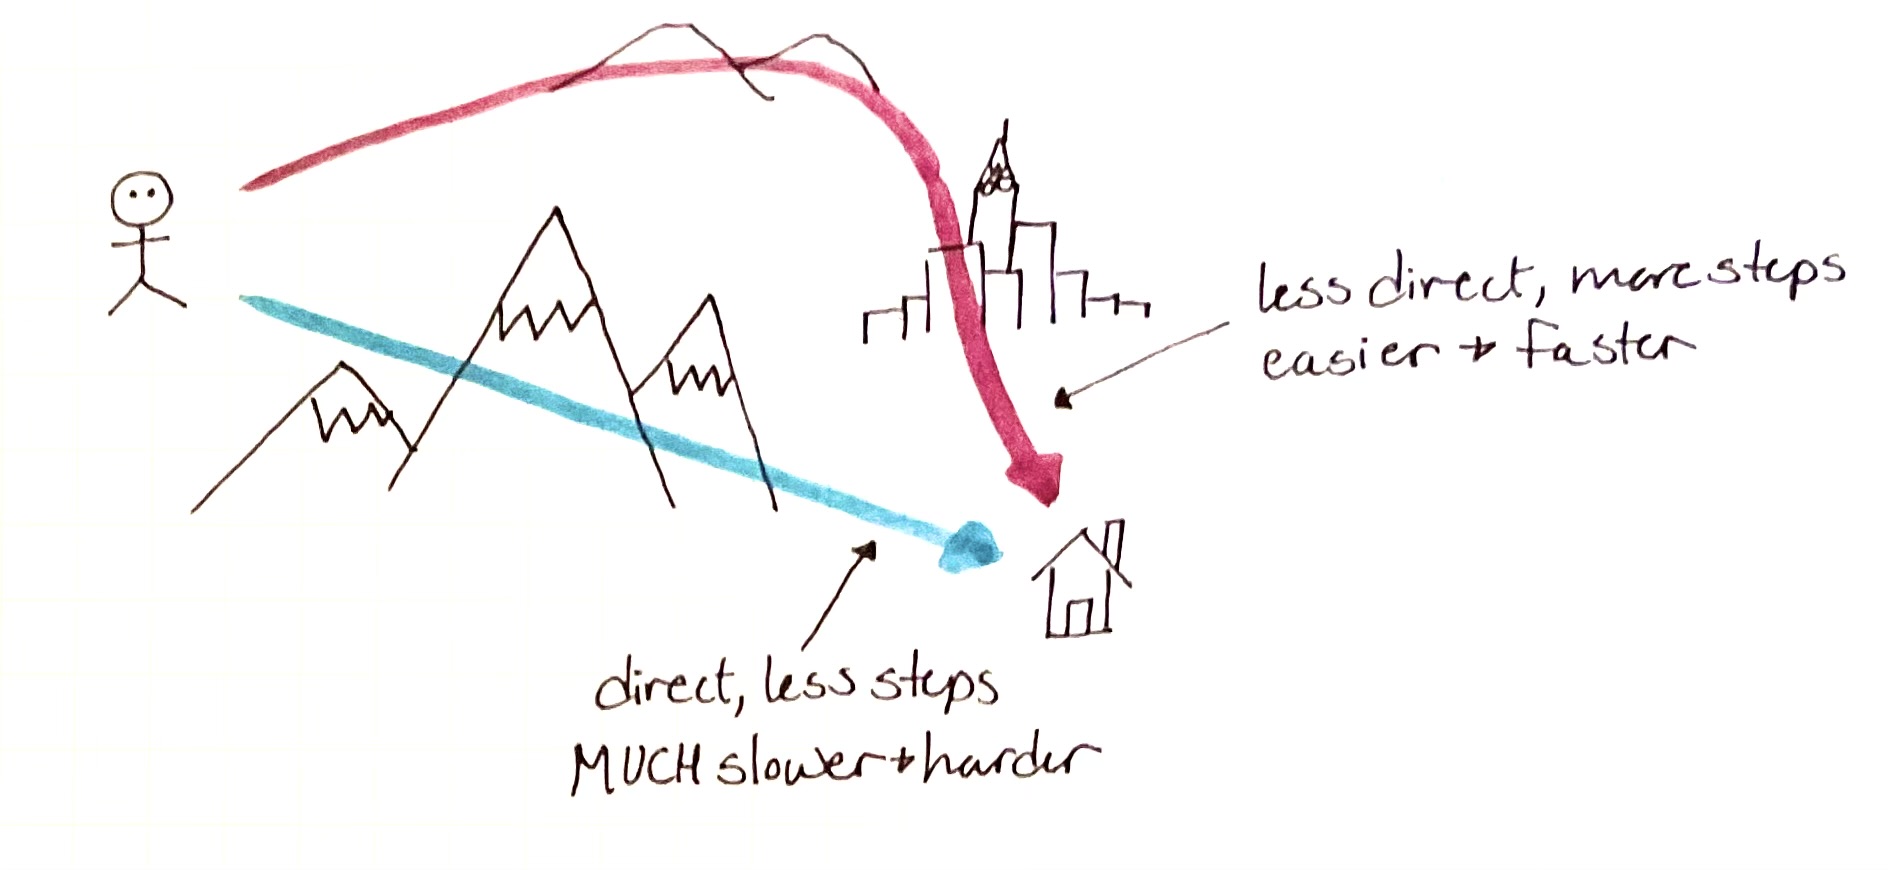 less direct, more steps
easier + faster
direct, less steps
MUCH slower + harder